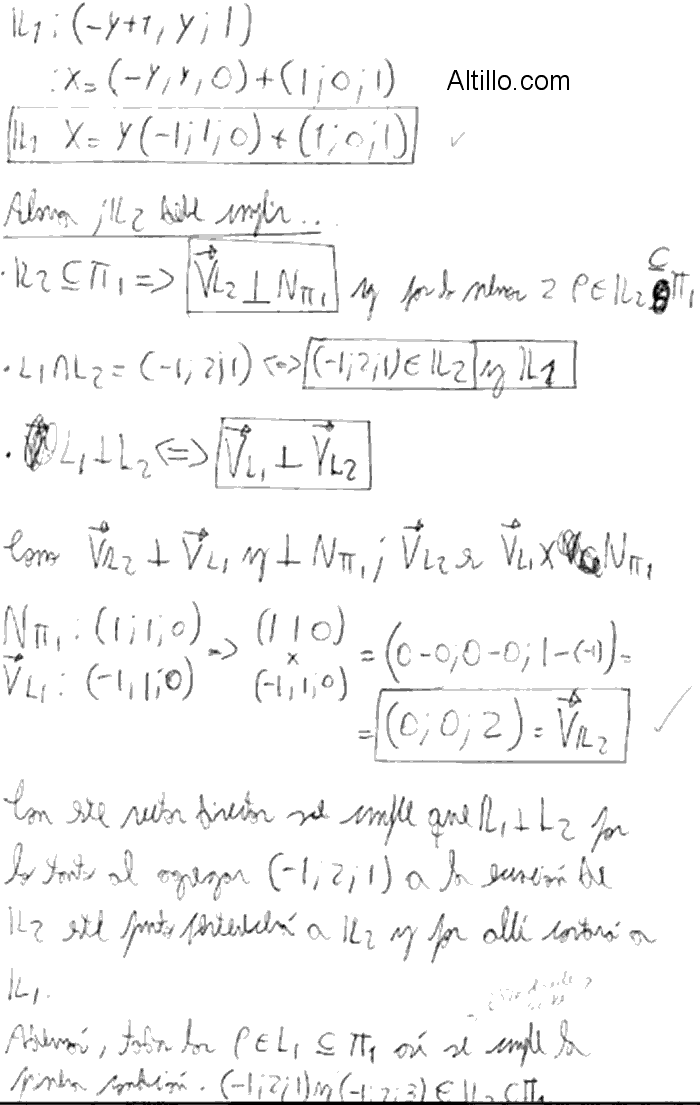 𝕃1: (-y+1, y; 1)
: x = (-y, y, 0) + (1; 0; 1)
Altillo.com
𝕃1 X = y(-1; 1; 0) + (1; 0; 1)
Ahora, 𝕃2 debe cumplir...
· 𝕃2 ⊆ Π1 => V⃗L2 ⊥ NΠ1 y por lo menos 2 P ∈ 𝕃2 ⊆ Π1
· L1 ∩ L2 = (-1; 2; 1) <=> (-1; 2; 1) ∈ 𝕃2 y 𝕃1
· L1 ⊥ L2 <=> V⃗L1 ⊥ V⃗L2
Como V⃗𝕃2 ⊥ V⃗L1 y ⊥ NΠ1; V⃗L2 es V⃗L1 x NΠ1
NΠ1: (1; 1; 0) => (1 1 0) x (-1; 1; 0) = (0-0; 0-0; 1-(-1)) =
V⃗L1: (-1, 1; 0)
= (0; 0; 2) = V⃗𝕃2
Con este vector director se cumple que 𝕃1 ⊥ L2 por
lo tanto al agregar (-1; 2; 1) a la ecuación de
𝕃2 este punto pertenecerá a 𝕃2 y por allí cortará a
𝕃1.
Además, todos los P ∈ L1 ⊆ Π1 así se cumple la
condición. (-1; 2; 1) y (-1; 2; 3) ∈ 𝕃2 ⊂ Π1